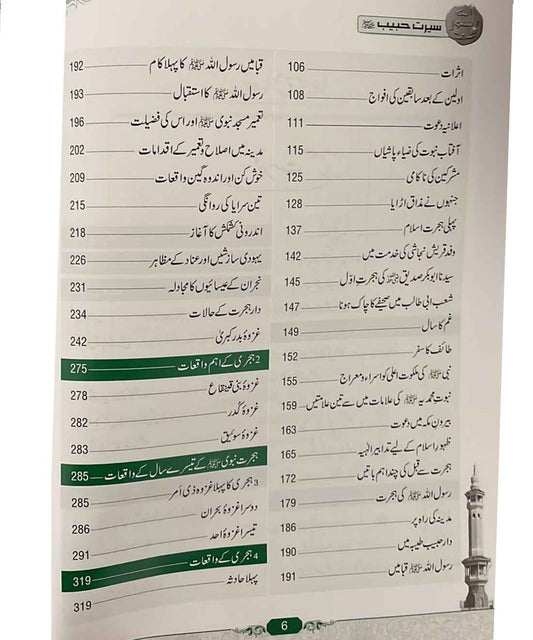 سیرت حبیب ﷺ
اثرات 106
اولین کے بعد سابقین کی افواج 108
اعلانیہ دعوت 111
آفتاب نبوت کی ضیاء پاشیاں 115
مشرکین کی ناکامی 125
جنہوں نے مذاق اڑایا 128
پہلی ہجرت اسلام 137
وفد قریش نجاشی کی خدمت میں 142
سیدنا ابوبکر صدیق رضی اللہ عنہ کی ہجرت اوّل 145
شعب ابی طالب میں صحیفے کا چاک ہونا 147
غم کا سال 149
طائف کا سفر 152
نبی ﷺ کی ملکوت اعلیٰ کو اسراء و معراج 155
نبوت محمدیہ ﷺ کی علامات میں سے تین علامتیں 159
بیرون مکہ میں دعوت 163
ظہور اسلام کے لیے تدابیر الٰہیہ 165
ہجرت سے قبل کی چند اہم باتیں 172
رسول اللہ ﷺ کی ہجرت 179
مدینہ کی راہ پر 186
دار حبیب طیبہ میں 190
رسول اللہ ﷺ قبا میں 191
قبا میں رسول اللہ ﷺ کا پہلا کام 192
رسول اللہ ﷺ کا استقبال 193
تعمیر مسجد نبوی ﷺ اور اس کی فضیلت 196
مدینہ میں اصلاح و تعمیر کے اقدامات 202
خوش کن اور اندوہ گین واقعات 209
تین سرایا کی روانگی 215
اندرونی کشمکش کا آغاز 218
یہودی سازشیں اور عناد کے مظاہر 226
نجران کے عیسائیوں کا مجادلہ 231
دار ہجرت کے حالات 234
غزوۂ بدر کبریٰ 242
2 ہجری کے اہم واقعات 275
غزوۂ بنی قینقاع 278
غزوۂ کُدر 282
غزوۂ سویق 283
ہجرت نبوی ﷺ کے تیسرے سال کے واقعات 285
3 ہجری کا پہلا غزوہ ذی اَمر 285
دوسرا غزوۂ بحران 286
تیسرا غزوۂ احد 291
4 ہجری کے واقعات 319
پہلا حادثہ 319
6